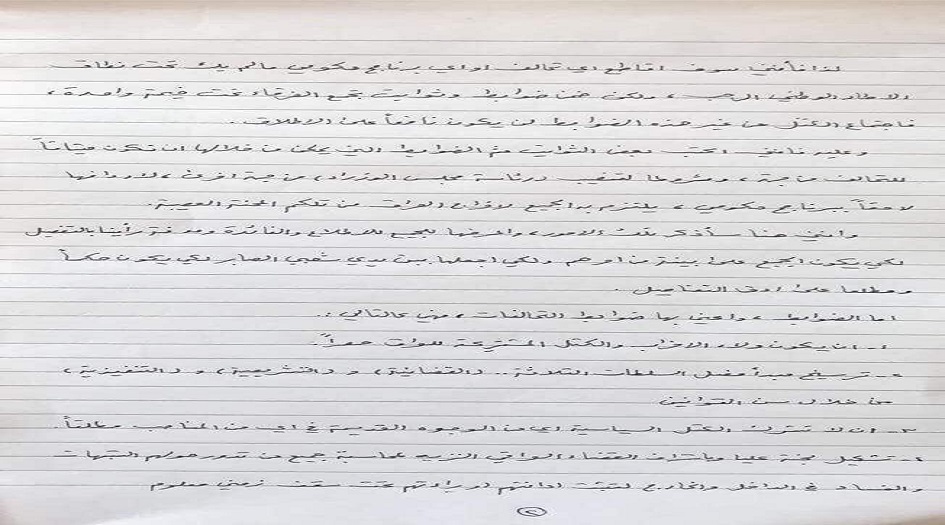 لذا فأنني سوف اقاطع اي تحالف او اي برنامج حكومي ما لم يك تحت نطاق
الاطار الوطني الرحب ، ولكن ضمن ضوابط وثوابت تجمع الفرقاء تحت خيمة واحدة ،
فاجتماع الكتل من غير هذه الضوابط لن يكون نافعاً على الاطلاق ..
وعليه فأنني اكتب بعض الثوابت ثم الضوابط التي يمكن من خلالها ان تكون ميثاقاً
للتحالف من جهة ، وشروطا لتنصيب (رئاسة مجلس الوزراء) من جهة اخرى ، لاردافها
لاحقاً ببرنامج حكومي ، يلتزم به الجميع لاخراج العراق من تلكم المحنة العصيبة.
وانني هنا سأذكر بعض الامور، واعرضها للجميع للاطلاع والفائدة ومعرفة رأينا بالتفصيل
لكي يكون الجميع على بينة من امرهم ولكي اجعلها بين يدي شعبي الصابر لكي يكون حكماً
ومطلعا على ادق التفاصيل .
اما الضوابط ، واعني بها ضوابط التحالفات ، فهي كالتالي :.
١- ان يكون ولاء الاحزاب والكتل المشتركة للعراق حصراً.
٢- ترسيخ مبدأ فصل السلطات الثلاثة .. (القضائية) و (التشريعية) و (التنفيذية)
من خلال سن القوانين
٣- ان لا تشترك الكتل السياسية اي من الوجوه القديمة في اي من المناصب مطلقاً.
٤- تشكيل لجنة عليا وباشراف القضاء العراقي النزيه لمحاسبة جميع من تدور حولهم الشبهات
والفساد في الداخل والخارج لتثبت ادانتهم او براءتهم تحت سقف زمني معلوم
٢